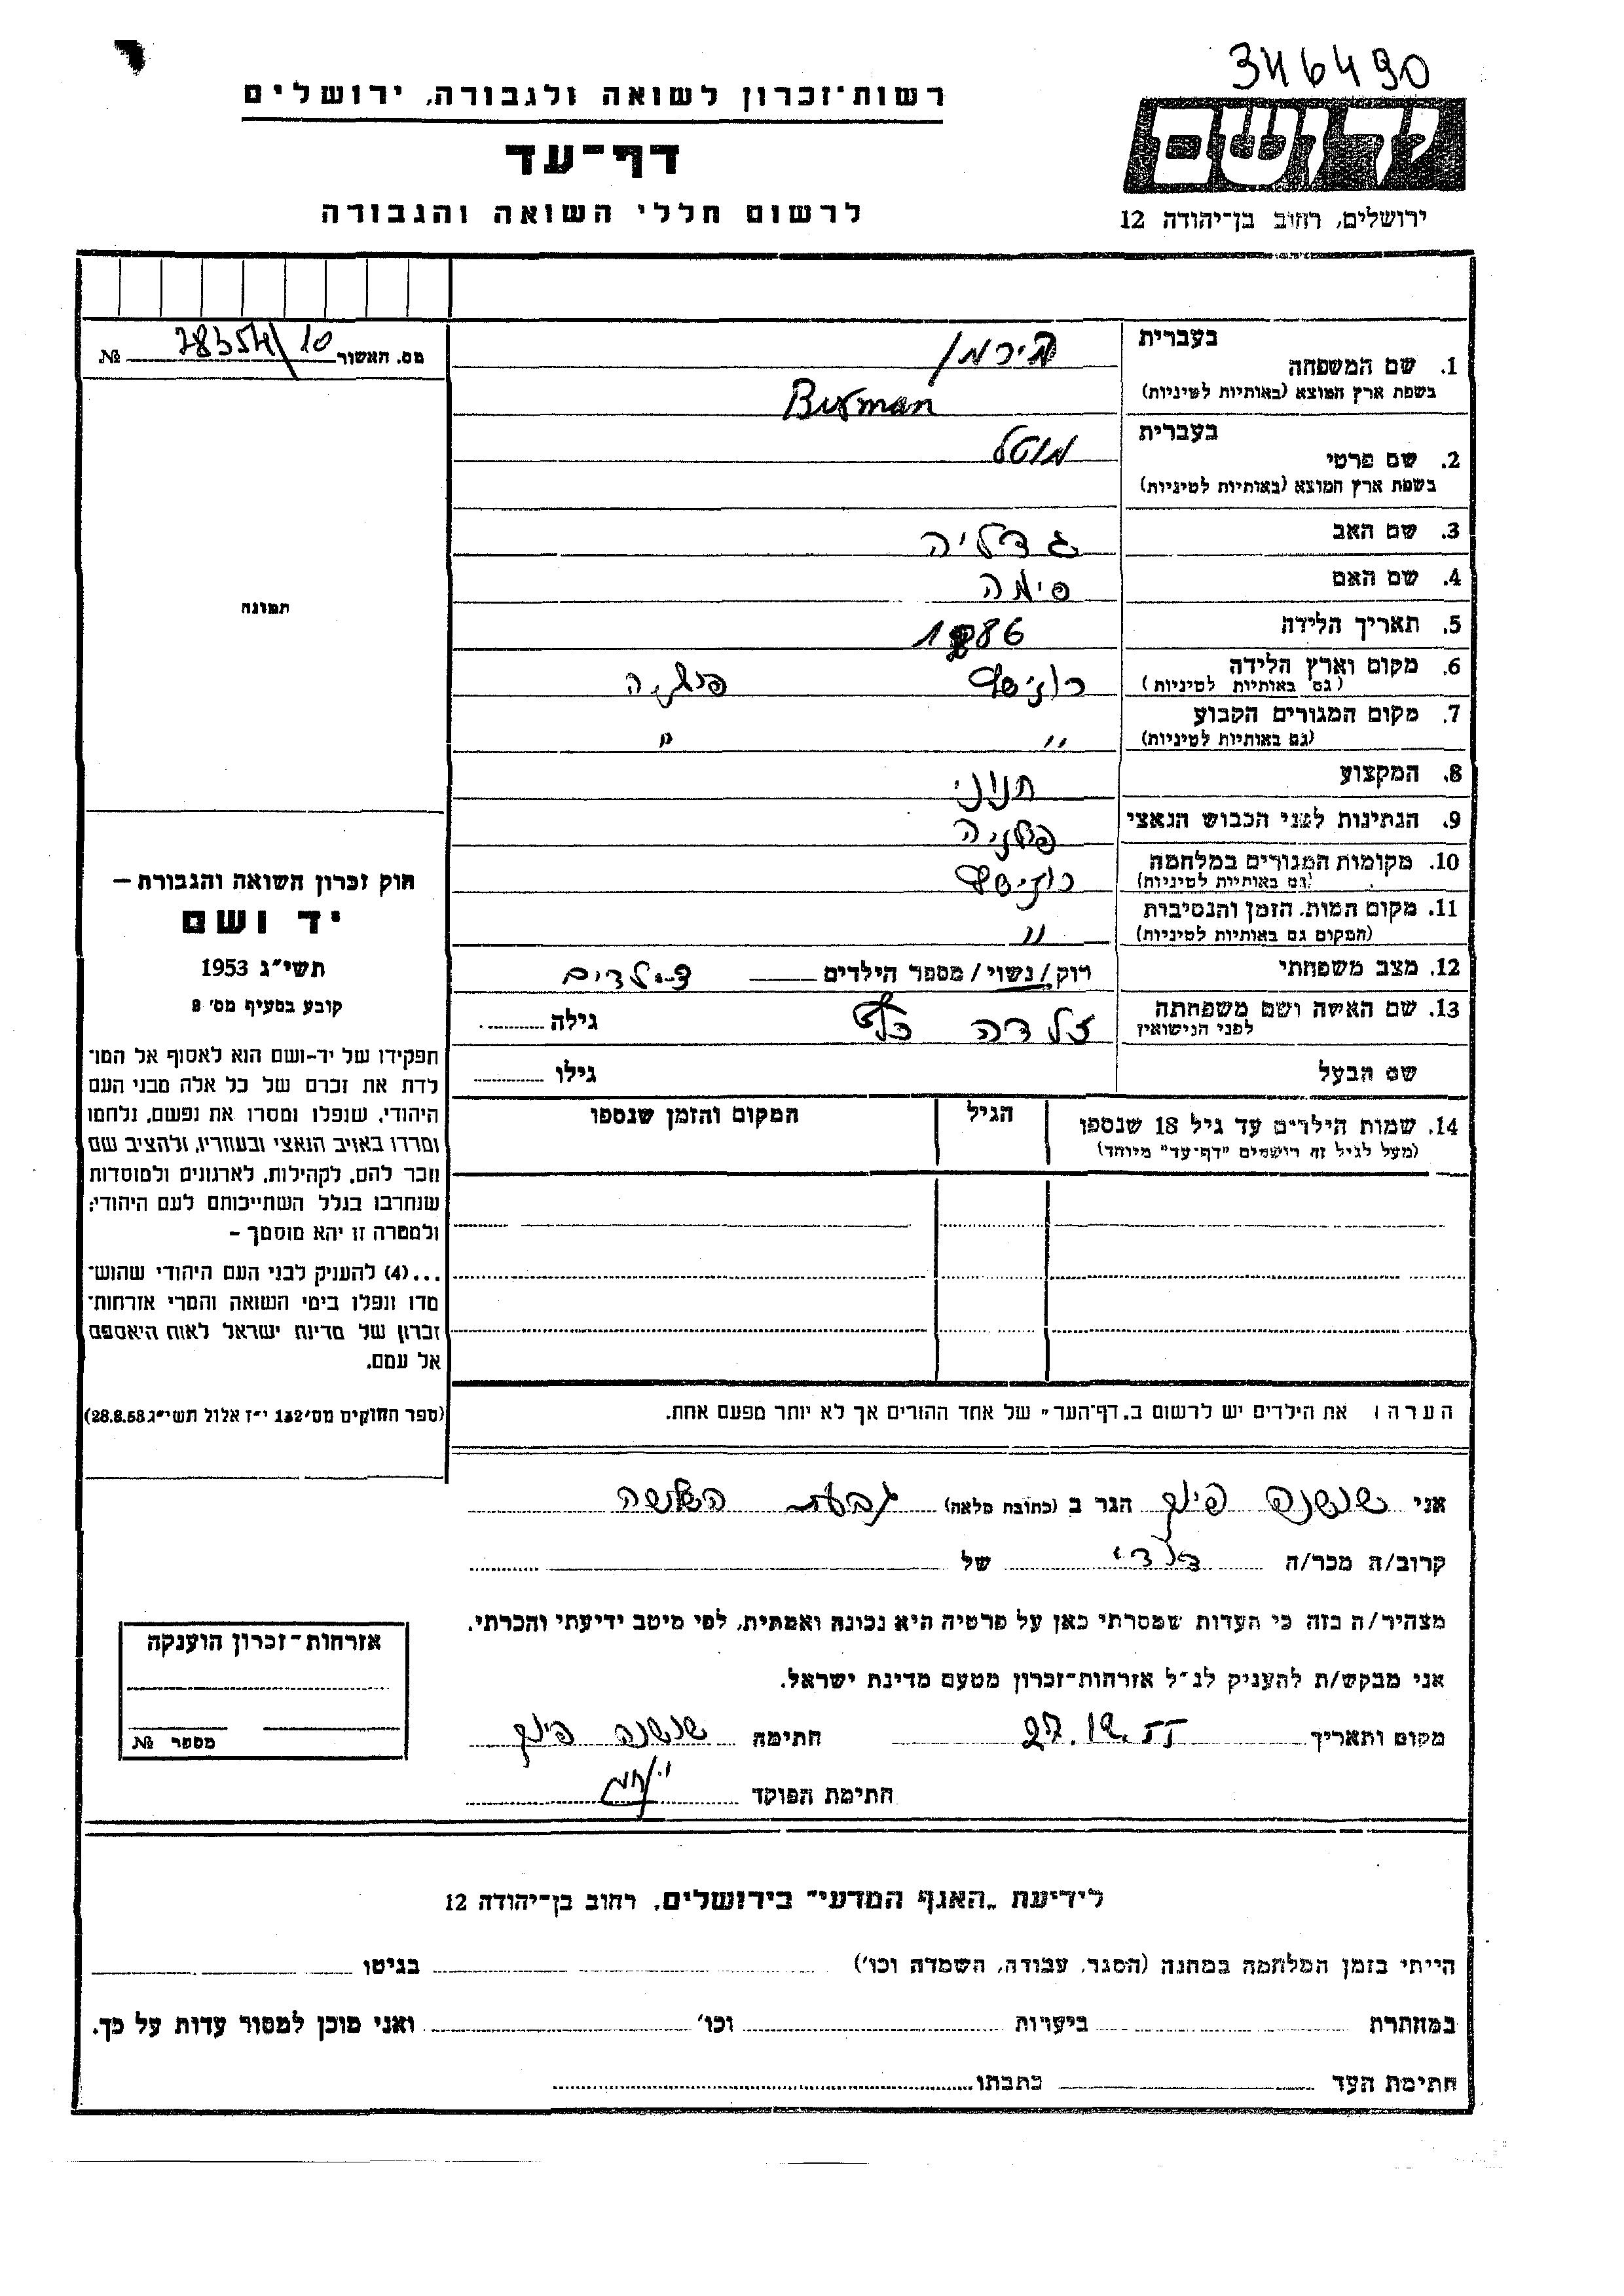 346490
רשות־זכרון לשואה ולגבורה, ירושלים
דף־עד
לרשום חללי השואה והגבורה
ידושם
ירושלים, רחוב בן־יהודה 12
מס. האשור 28354/10 №
בעברית
1. שם המשפחה
בשפת ארץ המוצא (באותיות לטיניות)
בירמן
Birman
בעברית
2. שם פרטי מוטל
בשפת ארץ המוצא (באותיות לטיניות)
3. שם האב גדליה
4. שם האם סימה
5. תאריך הלידה 1886
6. מקום וארץ הלידה
(גם באותיות לטיניות)
רוז'ישץ פולניה
7. מקום המגורים הקבוע
(גם באותיות לטיניות)
" "
8. המקצוע חנוני
9. הנתינות לפני הכבוש הנאצי פולניה
10. מקומות המגורים במלחמה
(גם באותיות לטיניות)
רוז'ישץ
11. מקום המות, הזמן והנסיבות
(המקום גם באותיות לטיניות)
"
12. מצב משפחתי רוק/נשוי/מספר הילדים ילדים
13. שם האשה ושם משפחתה
לפני הנישואין
זלדה כץ גילה
שם הבעל גילו
14. שמות הילדים עד גיל 18 שנספו הגיל המקום והזמן שנספו
(מעל לגיל זה רושמים "דף־עד" מיוחד)
הערה: את הילדים יש לרשום ב„דף־העד" של אחד ההורים אך לא יותר מפעם אחת.
תמונה
חוק זכרון השואה והגבורה –
יד ושם
תשי"ג 1953
קובע בסעיף מס' 8
תפקידו של יד-ושם הוא לאסוף אל המו־
לדת את זכרם של כל אלה מבני העם
היהודי, שנפלו ומסרו את נפשם, נלחמו
ומרדו באויב הנאצי ובעוזריו, ולהציב שם
וזכר להם, לקהילות, לארגונים ולמוסדות
שנחרבו בגלל השתייכותם לעם היהודי;
ולמטרה זו יהא מוסמך –
...(4) להעניק לבני העם היהודי שהוש־
מדו ונפלו בימי השואה והמרי אזרחות־
זכרון של מדינת ישראל לאות היאספם
אל עמם.
(ספר החוקים מס' 132 י"ז אלול תשי"ג 28.8.53)
אני שושנה פינק הגר ב (כתובת מלאה) גבעת השלושה
קרוב/ה מכר/ה של
מצהיר/ה בזה כי העדות שמסרתי כאן על פרטיה היא נכונה ואמתית, לפי מיטב ידיעתי והכרתי.
אני מבקש/ת להעניק לנ"ל אזרחות־זכרון מטעם מדינת ישראל.
מקום ותאריך 27.12.55 חתימה שושנה פינק
חתימת הפוקד
אזרחות־זכרון הוענקה
מספר №
לידיעת „האגף המדעי" בירושלים, רחוב בן־יהודה 12
הייתי בזמן המלחמה במחנה (הסגר, עבודה, השמדה וכו') בגיטו
במחתרת ביערות וכו' ואני מוכן למסור עדות על כך.
חתימת העד כתבתו